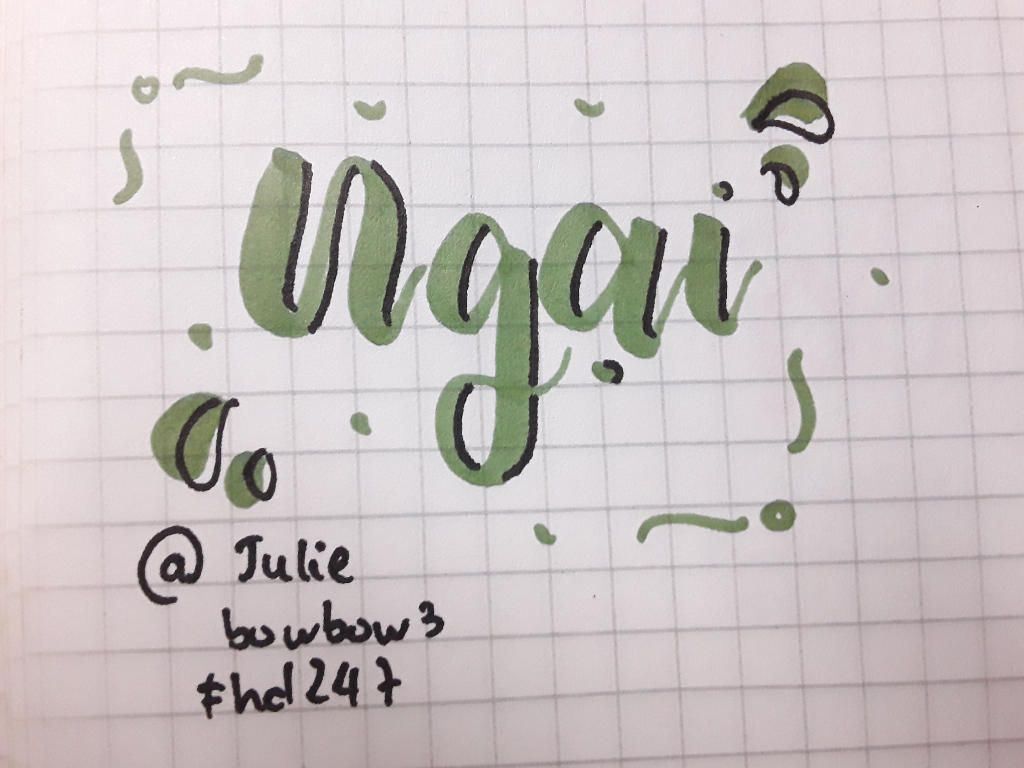 Ngại
@Julie
bowbow3
#hd247